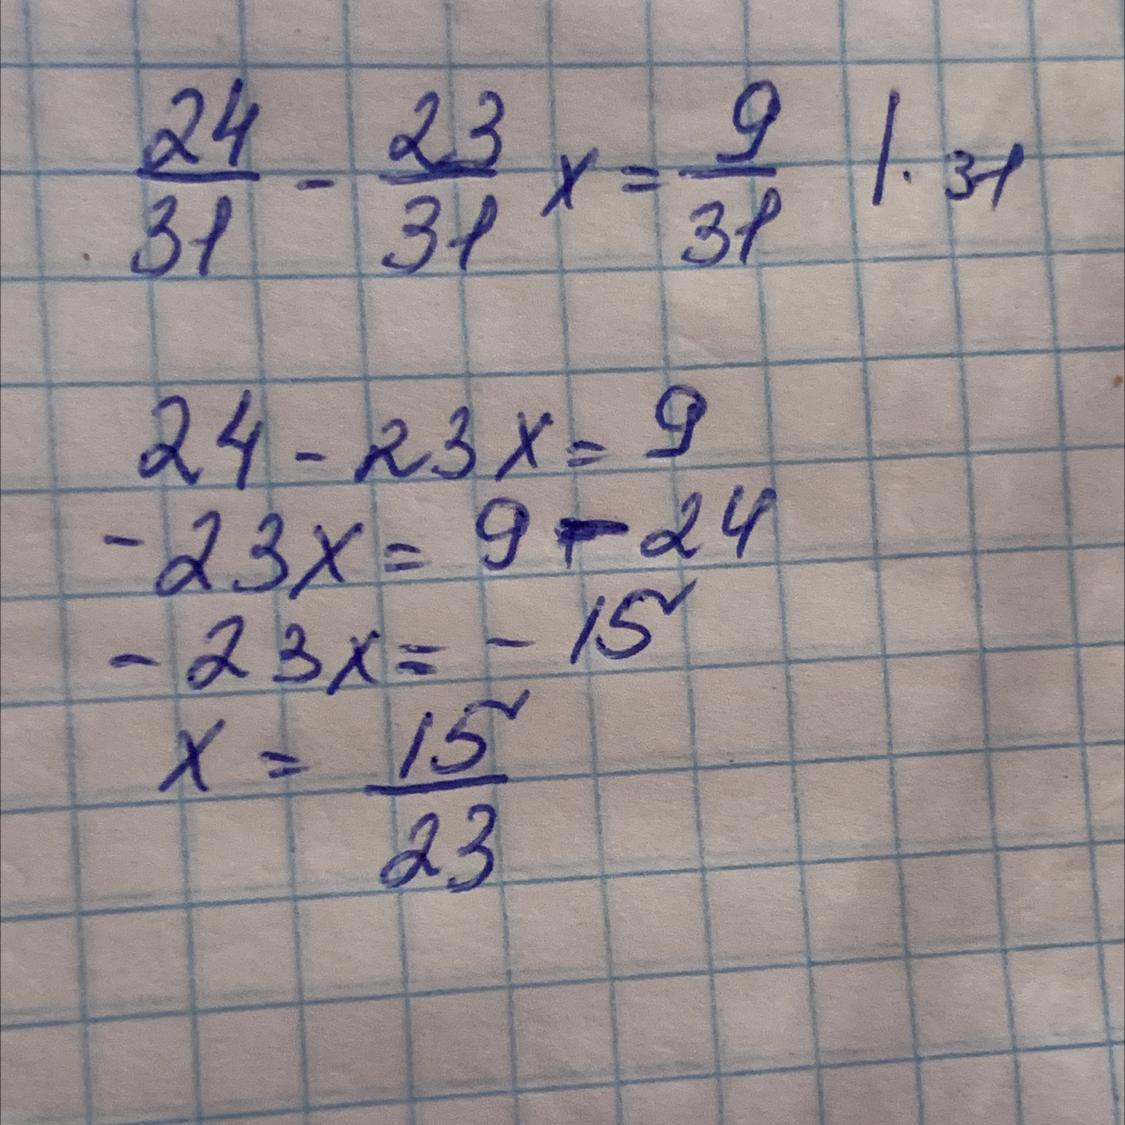 24/31 - 23/31 x = 9/31 | · 31
24 - 23x = 9
-23x = 9 - 24
-23x = -15
x = 15/23